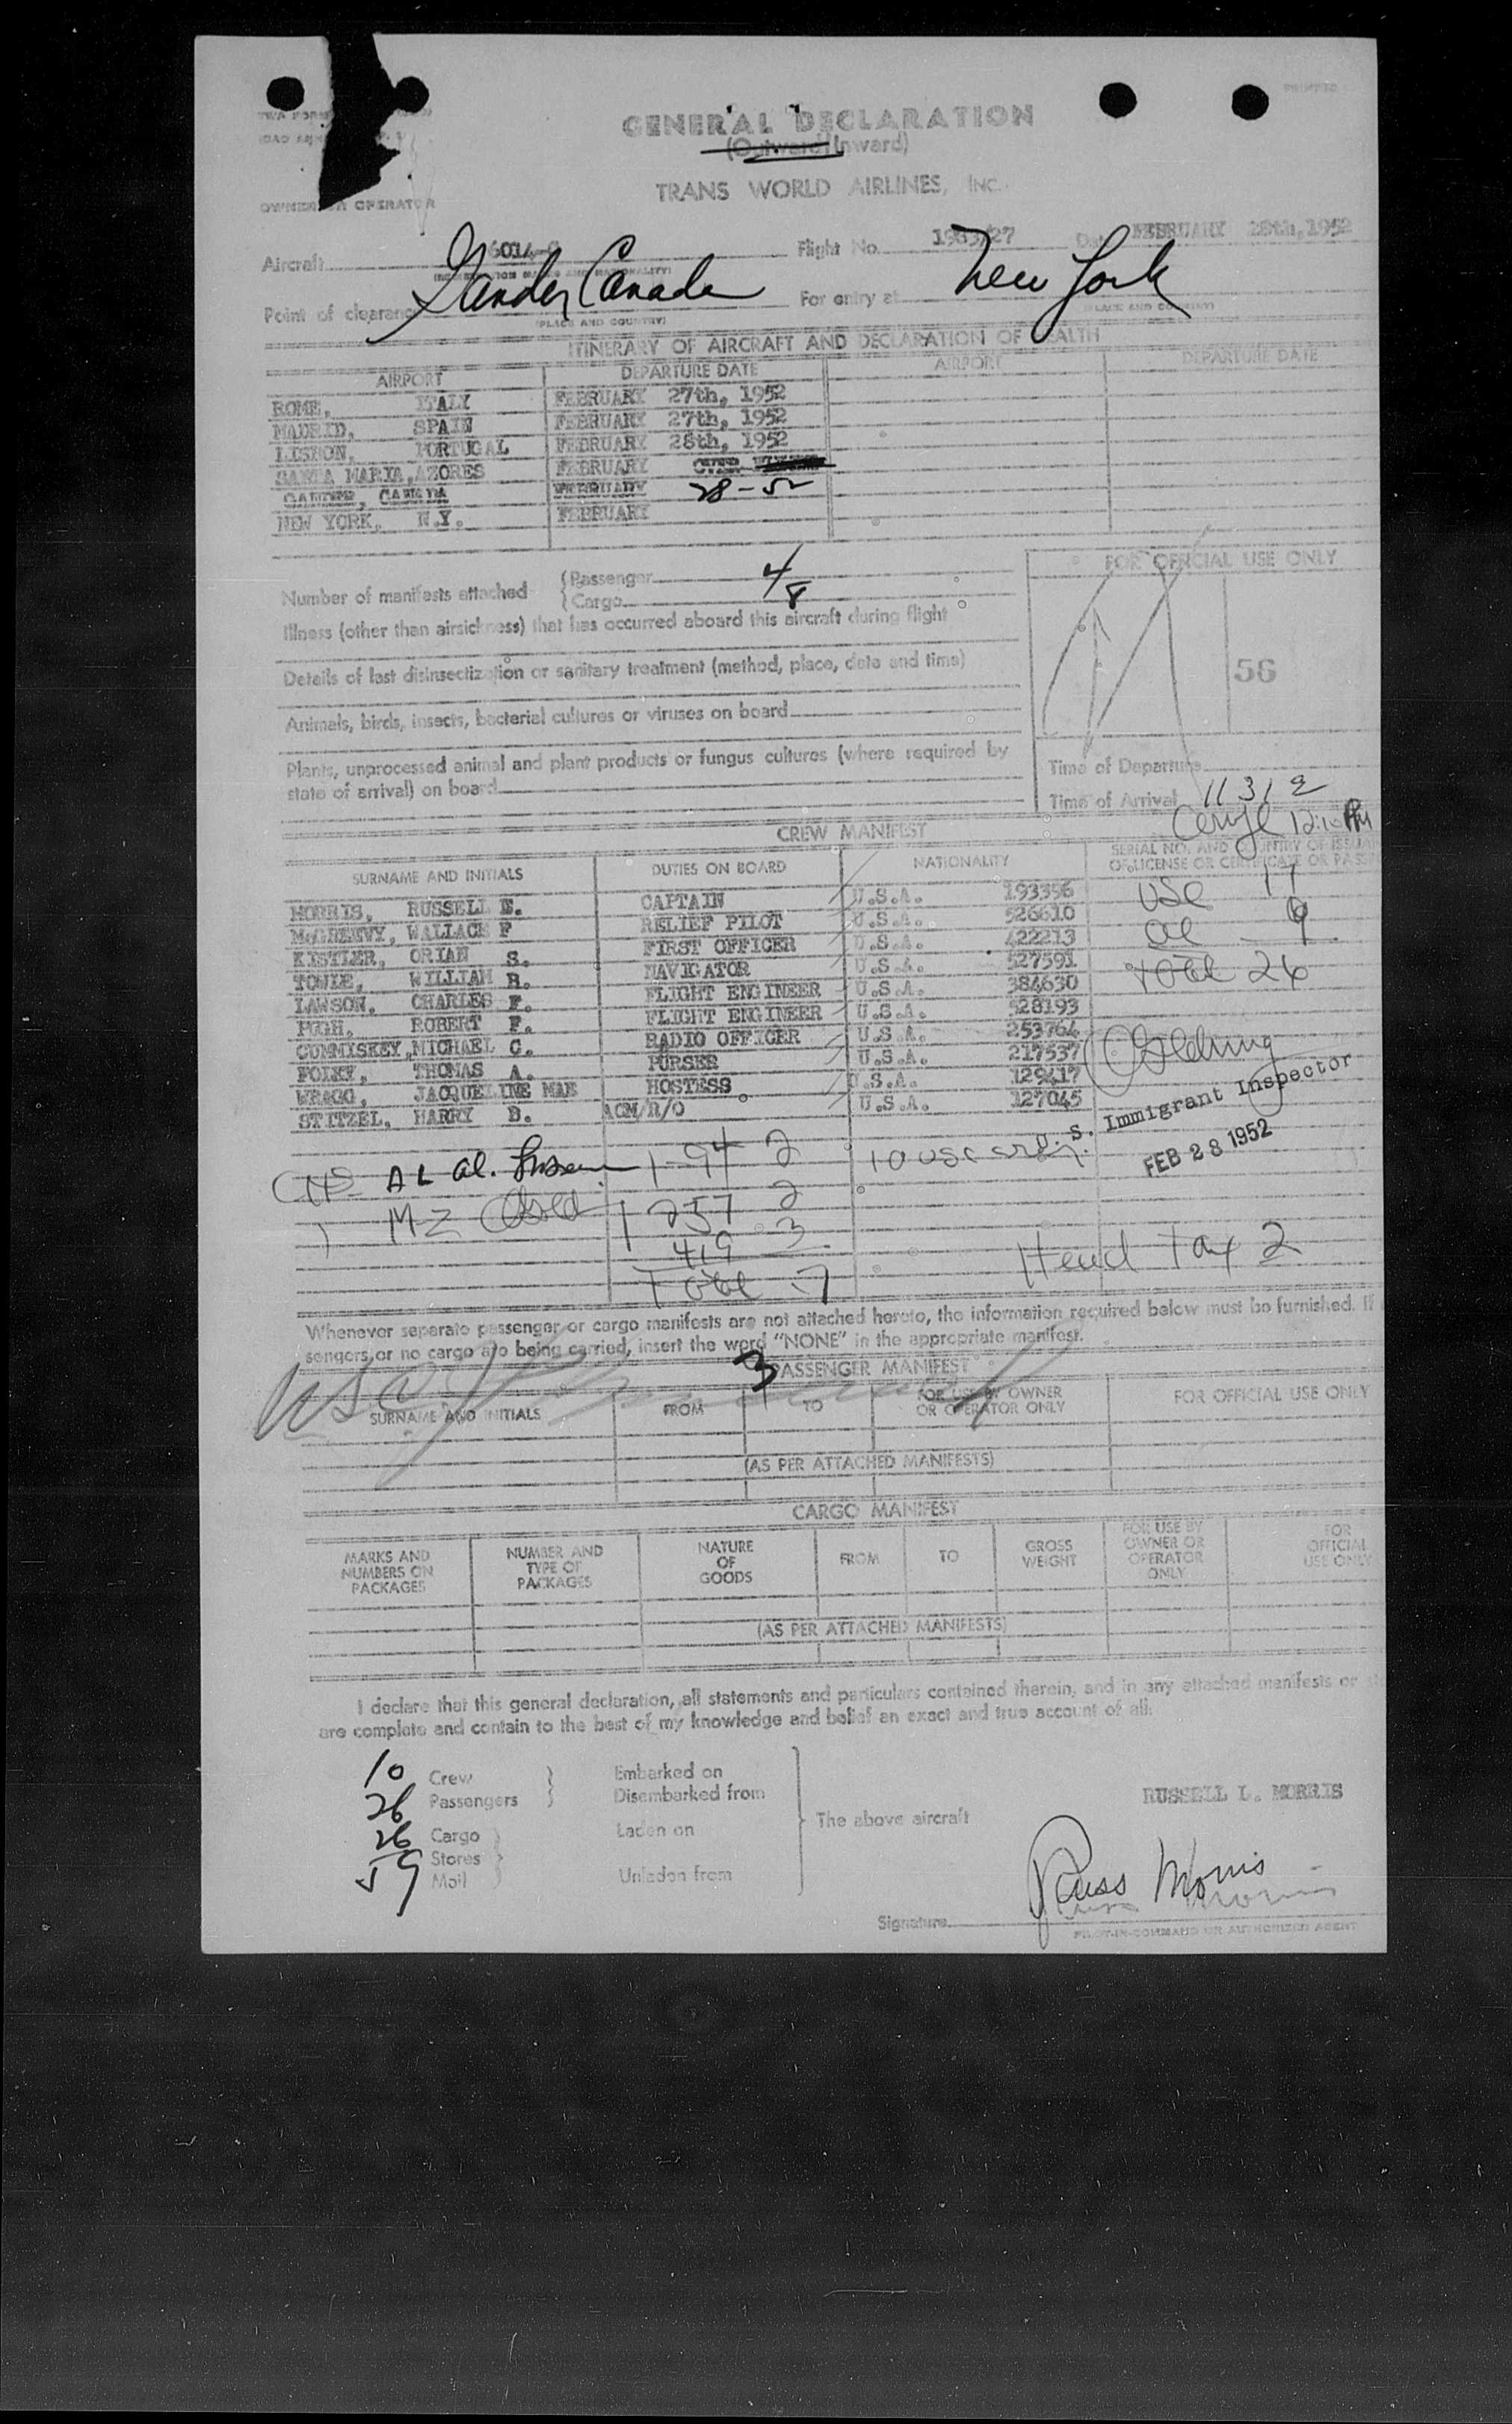 GENERAL DECLARATION
(Outward/Inward)
TRANS WORLD AIRLINES, INC.
OWNER OR OPERATOR
Aircraft 6014-C Flight No. 1963/27 Date FEBRUARY 28th, 1952
Point of clearance Gander Canada For entry at New York
(PLACE AND COUNTRY) (PLACE AND COUNTRY)
ITINERARY OF AIRCRAFT AND DECLARATION OF HEALTH
AIRPORT DEPARTURE DATE AIRPORT DEPARTURE DATE
ROME, ITALY FEBRUARY 27th, 1952
MADRID, SPAIN FEBRUARY 27th, 1952
LISBON, PORTUGAL FEBRUARY 28th, 1952
SANTA MARIA, AZORES FEBRUARY OVER
GANDER, CANADA FEBRUARY 28-52
NEW YORK, N.Y. FEBRUARY
FOR OFFICIAL USE ONLY
Number of manifests attached (Passenger 4
(Cargo 8
Illness (other than airsickness) that has occurred aboard this aircraft during flight
56
Details of last disinsectization or sanitary treatment (method, place, date and time)
Animals, birds, insects, bacterial cultures or viruses on board
Plants, unprocessed animal and plant products or fungus cultures (where required by
state of arrival) on board
Time of Departure
Time of Arrival 1131
12:10 PM
CREW MANIFEST
SURNAME AND INITIALS DUTIES ON BOARD NATIONALITY SERIAL NO. AND COUNTRY OF ISSUA
OF LICENSE OR CERTIFICATE OR PASS
MORRIS, RUSSELL E. CAPTAIN U.S.A. 193396
McGREEVY, WALLACE F RELIEF PILOT U.S.A. 526610
KISTLER, ORIAN S. FIRST OFFICER U.S.A. 422213
TOWLE, WILLIAM R. NAVIGATOR U.S.A. 527591
LAWSON, CHARLES F. FLIGHT ENGINEER U.S.A. 384630
PUGH, ROBERT F. FLIGHT ENGINEER U.S.A. 528193
CUMMISKEY, MICHAEL C. RADIO OFFICER U.S.A. 253764
FOLEY, THOMAS A. PURSER U.S.A. 217537
WRAGG, JACQUELINE MAE HOSTESS U.S.A. 129417
STITZEL, HARRY D. ACM/R/O U.S.A. 127045
USC 17
al 9
Total 26
U.S. Immigrant Inspector
FEB 28 1952
A L al. 1-94 2
M Z 1 257 2
419 3
Total 7
Head Tax 2
Whenever separate passenger or cargo manifests are not attached hereto, the information required below must be furnished. If
sengers or no cargo are being carried, insert the word "NONE" in the appropriate manifest.
3
PASSENGER MANIFEST
SURNAME AND INITIALS FROM TO FOR USE BY OWNER OR OPERATOR ONLY FOR OFFICIAL USE ONLY
(AS PER ATTACHED MANIFESTS)
CARGO MANIFEST
MARKS AND NUMBERS ON PACKAGES NUMBER AND TYPE OF PACKAGES NATURE OF GOODS FROM TO GROSS WEIGHT FOR USE BY OWNER OR OPERATOR ONLY FOR OFFICIAL USE ONLY
(AS PER ATTACHED MANIFESTS)
I declare that this general declaration, all statements and particulars contained therein, and in any attached manifests or
are complete and contain to the best of my knowledge and belief an exact and true account of all:
10 Crew Embarked on
26 Passengers Disembarked from
26 Cargo Laden on
Stores
59 Mail Unladen from
The above aircraft
RUSSELL L. MORRIS
Russ Morris
Signature
PILOT-IN-COMMAND OR AUTHORIZED AGENT